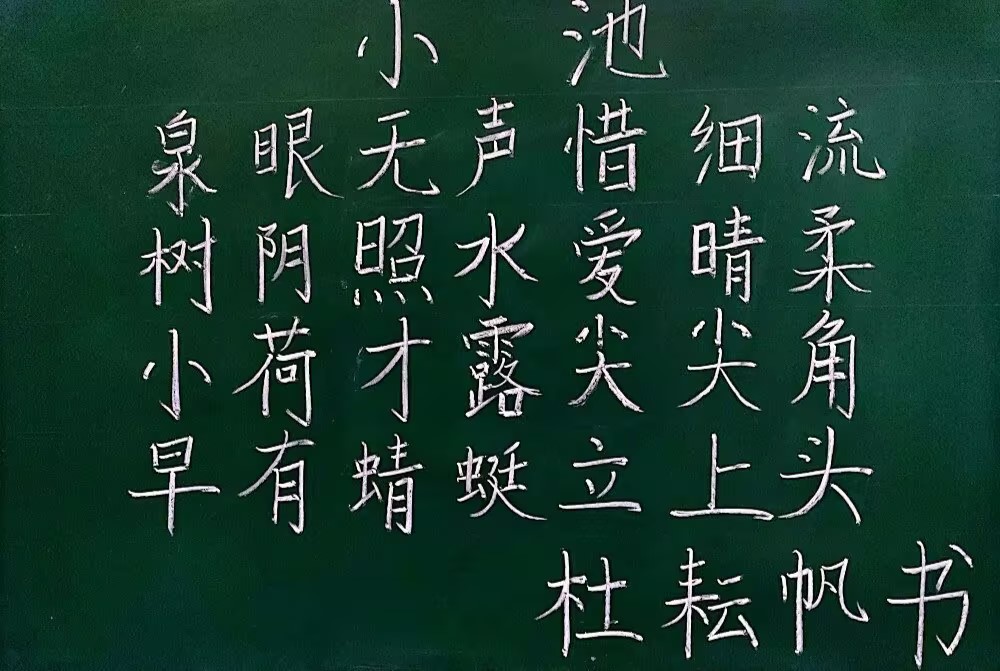 小池
泉眼无声惜细流
树阴照水爱晴柔
小荷才露尖尖角
早有蜻蜓立上头
杜耘帆书